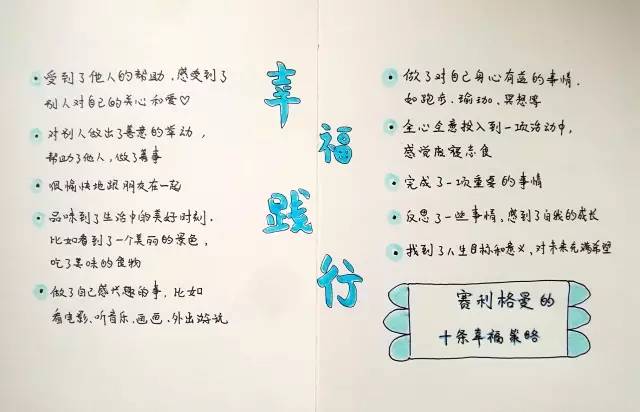 幸福践行
• 受到了他人的帮助，感受到了
别人对自己的关心和爱♡
• 对别人做出了善意的举动，
帮助了他人，做了善事
• 很愉快地跟朋友在一起
• 品味到了生活中的美好时刻，
比如看到了一个美丽的景色，
吃了美味的食物
• 做了自己感兴趣的事，比如
看电影、听音乐、画画、外出游玩
• 做了对自己身心有益的事情，
如跑步、瑜珈、冥想等
• 全心全意投入到一项活动中，
感觉废寝忘食
• 完成了一项重要的事情
• 反思了一些事情，感到了自我的成长
• 找到了人生目标和意义，对未来充满希望
赛利格曼的
十条幸福策略